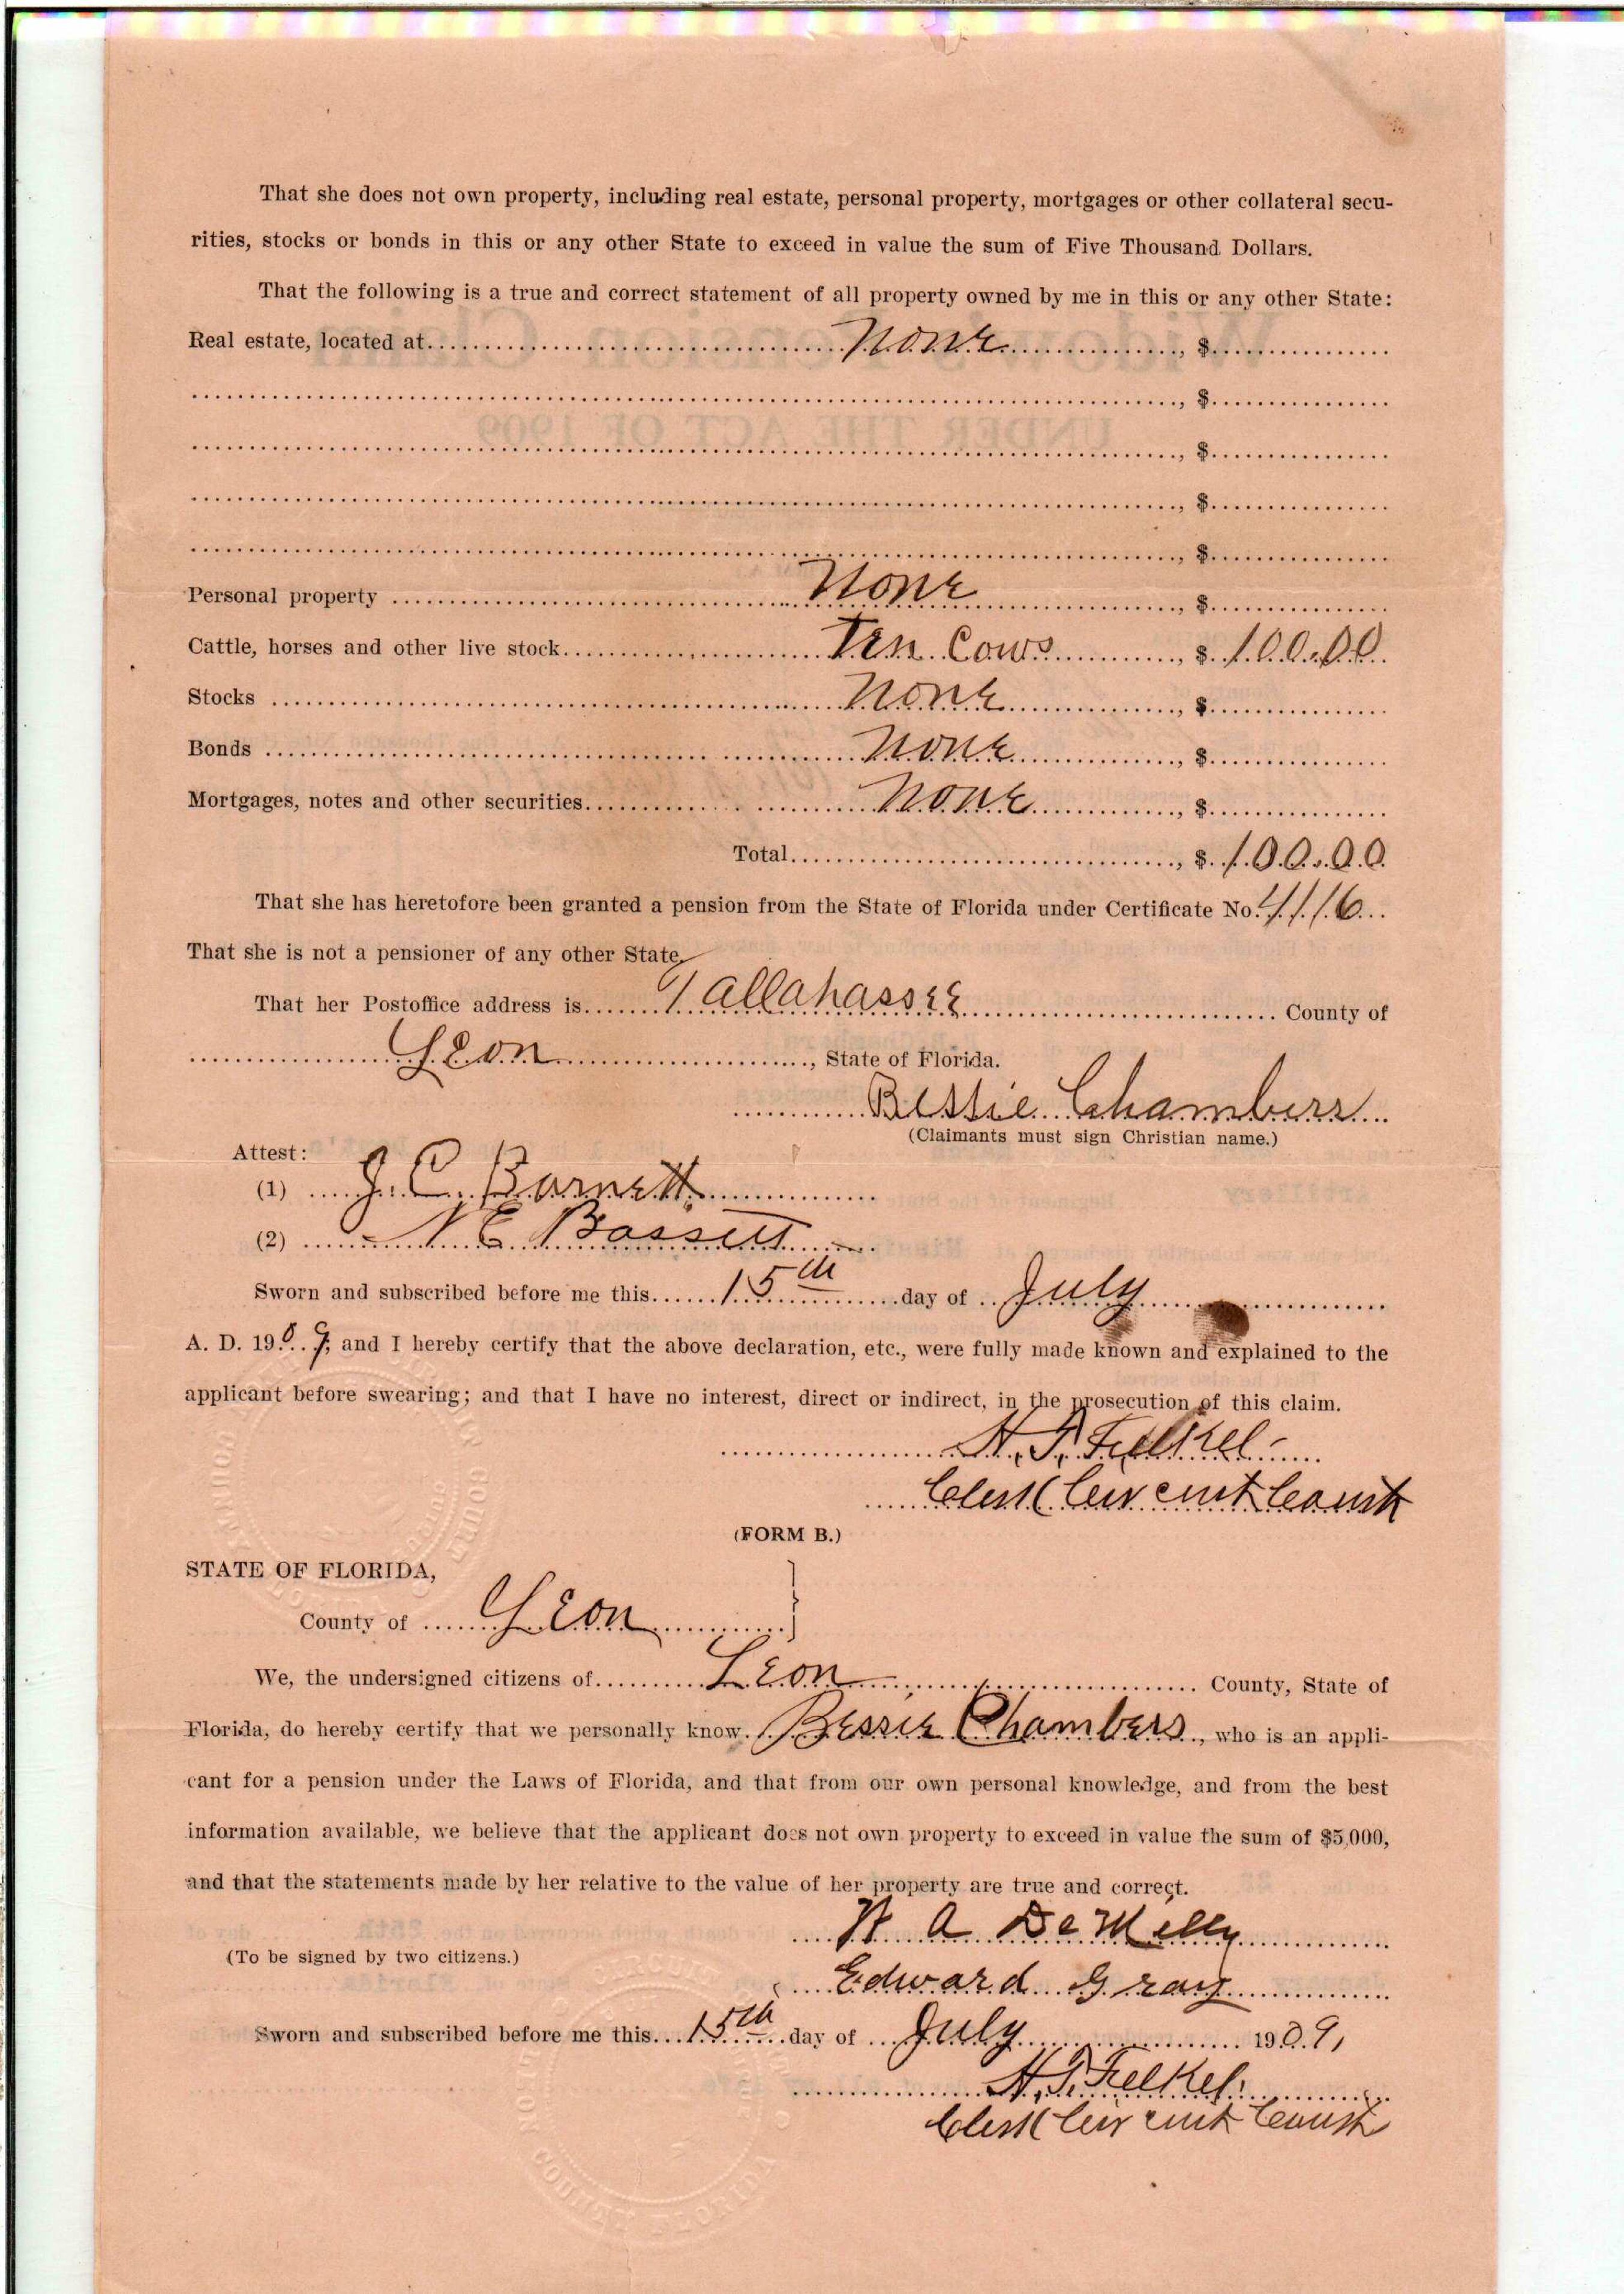 That she does not own property, including real estate, personal property, mortgages or other collateral secu-
rities, stocks or bonds in this or any other State to exceed in value the sum of Five Thousand Dollars.
That the following is a true and correct statement of all property owned by me in this or any other State:
Real estate, located at None, $
, $
, $
, $
, $
Personal property None, $
Cattle, horses and other live stock Ten Cows, $ 100.00
Stocks None, $
Bonds None, $
Mortgages, notes and other securities None, $
Total, $ 100.00
That she has heretofore been granted a pension from the State of Florida under Certificate No. 4116
That she is not a pensioner of any other State.
That her Postoffice address is Tallahassee County of
Leon, State of Florida.
Bessie Chambers
(Claimants must sign Christian name.)
Attest:
(1) J. C. Barnett
(2) N E Bassett
Sworn and subscribed before me this 15th day of July
A. D. 1909; and I hereby certify that the above declaration, etc., were fully made known and explained to the
applicant before swearing; and that I have no interest, direct or indirect, in the prosecution of this claim.
H. T. Felkel
Clerk Circuit Court
(FORM B.)
STATE OF FLORIDA,
County of Leon
We, the undersigned citizens of Leon County, State of
Florida, do hereby certify that we personally know Bessie Chambers, who is an appli-
cant for a pension under the Laws of Florida, and that from our own personal knowledge, and from the best
information available, we believe that the applicant does not own property to exceed in value the sum of $5,000,
and that the statements made by her relative to the value of her property are true and correct.
A DeMilly
(To be signed by two citizens.)
Edward Gray
Sworn and subscribed before me this 15th day of July 1909,
H. T. Felkel
Clerk Circuit Court